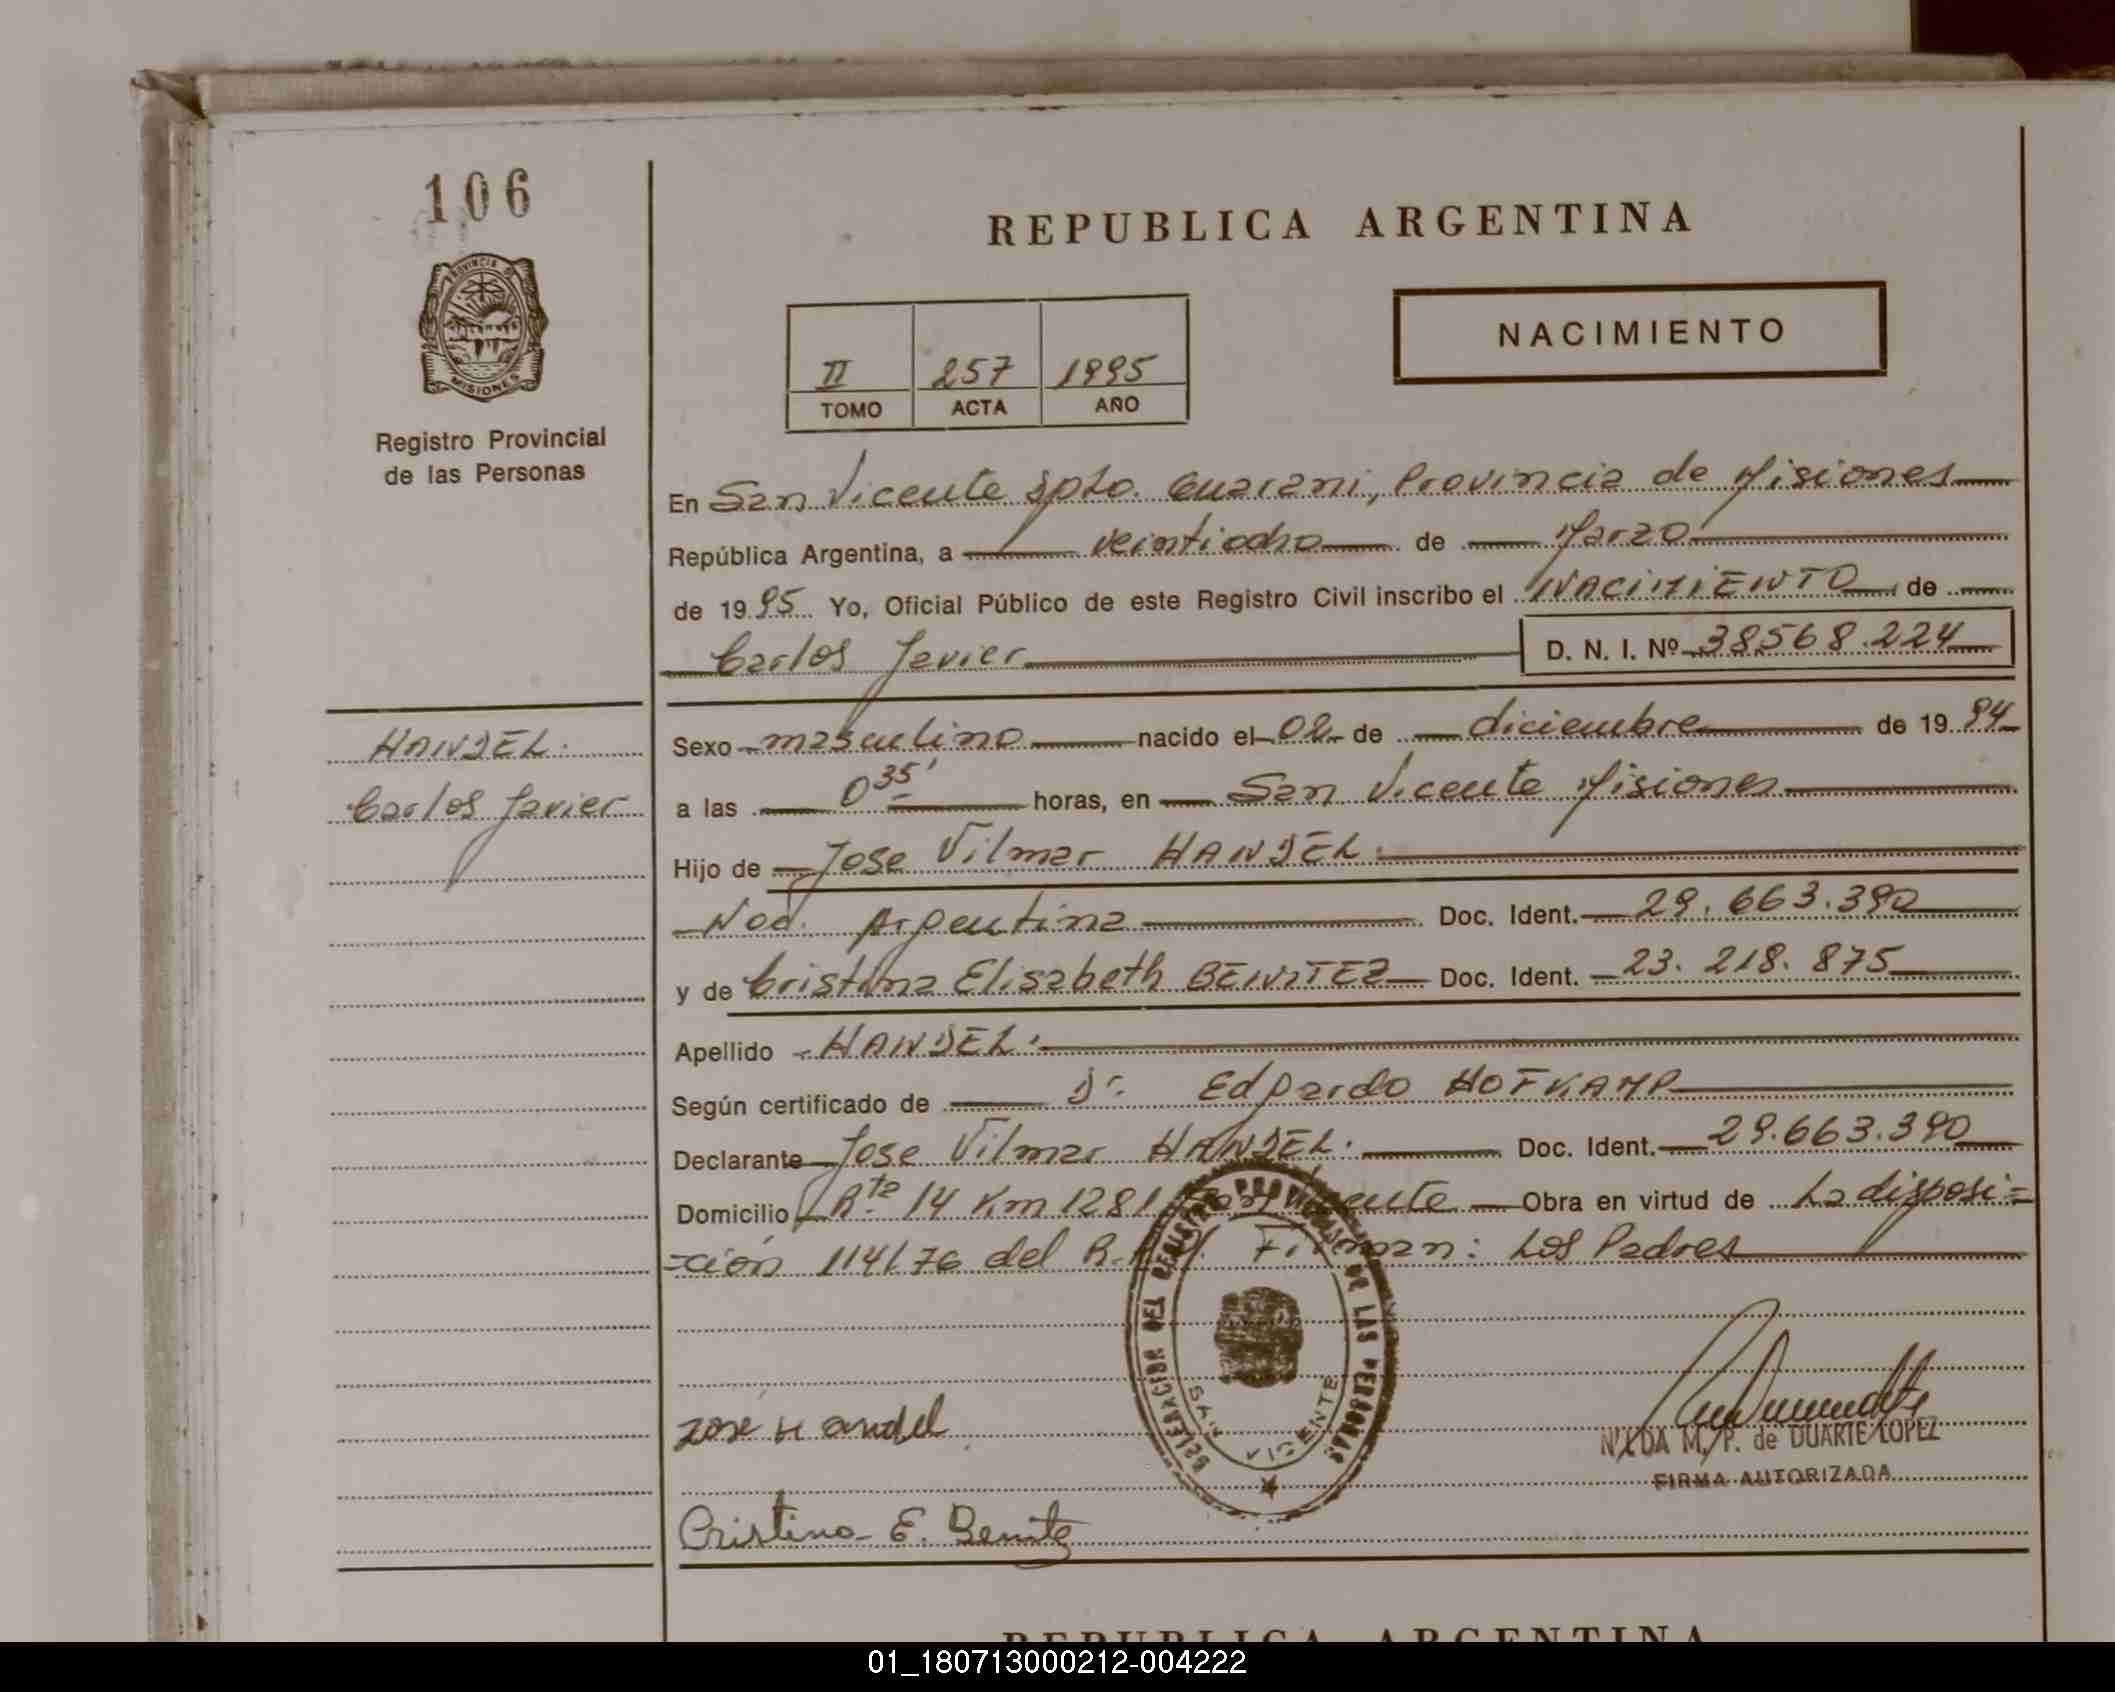 106
PROVINCIA DE
MISIONES
Registro Provincial
de las Personas
REPUBLICA ARGENTINA
NACIMIENTO
II 257 1995
TOMO ACTA AÑO
En San Vicente Dpto. Guarani, Provincia de Misiones
República Argentina, a veintiocho de Marzo
de 1995 Yo, Oficial Público de este Registro Civil inscribo el NACIMIENTO de
Carlos Javier D. N. I. Nº 38568.224
HANDEL.
Carlos Javier
Sexo masculino nacido el 02 de diciembre de 1994
a las 0 35' horas, en San Vicente Misiones
Hijo de Jose Vilmar HANDEL.
Nad. Argentina Doc. Ident. 29.663.390
y de Cristina Elisabeth BENITEZ Doc. Ident. 23.218.875
Apellido HANDEL.
Según certificado de Dr. Edgardo HOFKAMP
Declarante Jose Vilmar HANDEL. Doc. Ident. 29.663.390
Domicilio Rta 14 Km 1281 San Vicente Obra en virtud de La disposi=
=ción 114/76 del Firman: Los Padres
DELEGACION DEL REGISTRO PROVINCIAL DE LAS PERSONAS
SAN VICENTE
Jose Handel
Cristina E. Benitez
NILDA M. P. de DUARTE LOPEZ
FIRMA AUTORIZADA
REPUBLICA ARGENTINA
01_180713000212-004222